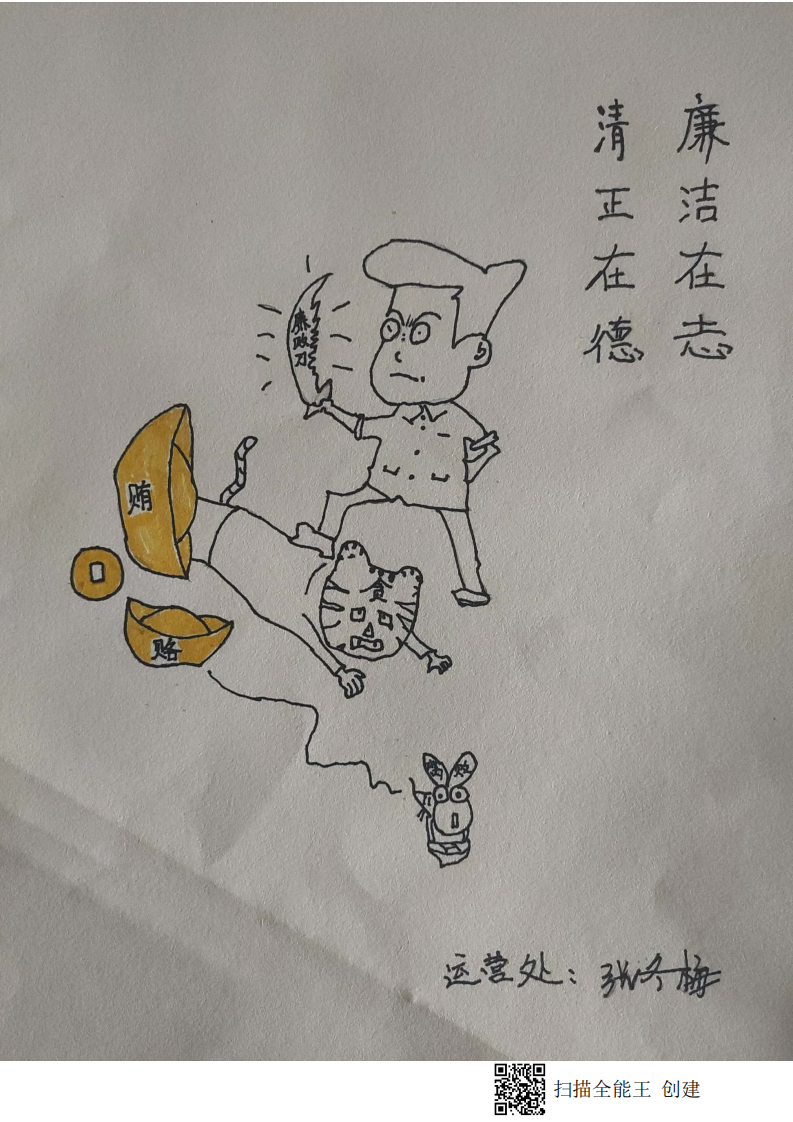 廉洁在志
清正在德
廉政刀
贿
贪
赂
腐败
运营处：张冬梅
扫描全能王 创建